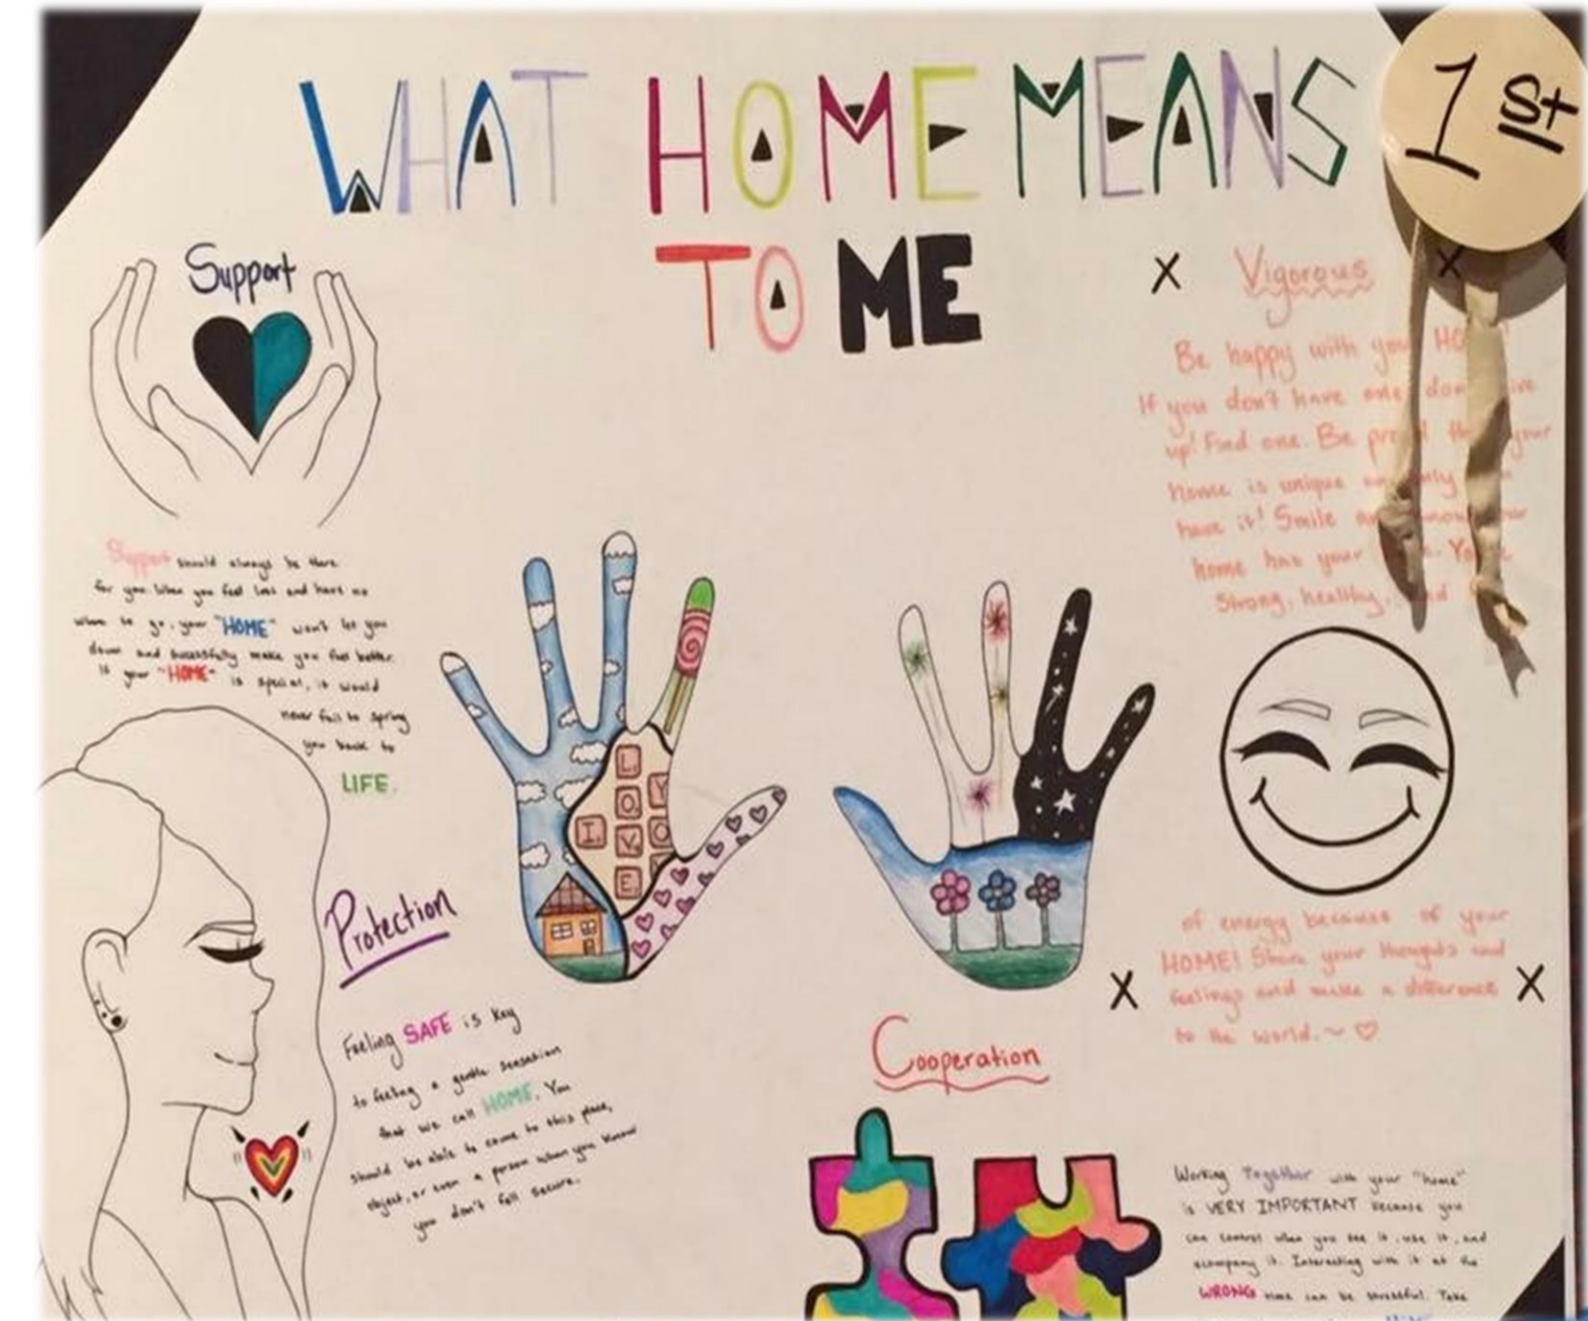 WHAT HOME MEANS
TO ME
1st
Support
Support should always be there
for you. When you feel loss and have no
where to go, your "HOME" won't let you
down and sucessfully make you feel better.
If your "HOME" is special, it would
never fail to spring
you back to
LIFE.
Protection
Feeling SAFE is key
to feeling a gentle sensation
that we call HOME. You
should be able to come to this place,
object, or even a person when you know
you don't fell secure.
I LOVE YO
x Vigorous x
Be happy with you HO
If you don't have one don
up! Find one. Be your
home is unique only
have it! Smile
home has your
Strong, healthy,
of energy because of your
HOME! Share your thoughts and
feelings and make a difference
to the world. ~ ♡
x x
Cooperation
Working Together with your "home"
is VERY IMPORTANT because you
can control when you see it, use it, and
accompany it. Interacting with it at the
WRONG time can be stressful. Take